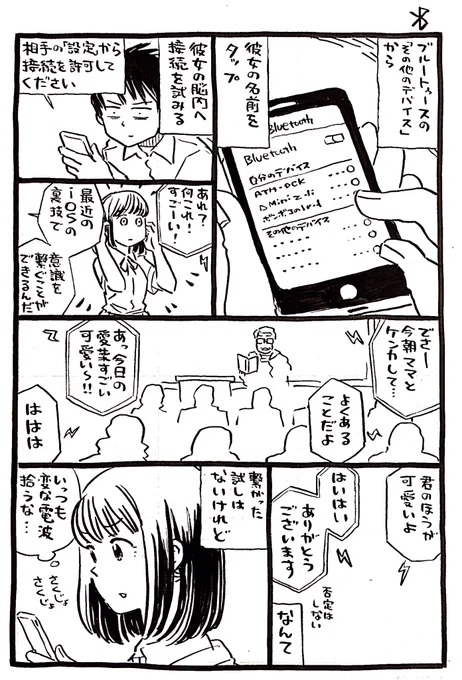 ブルートゥースの
「その他のデバイス」
から
Bluetooth
Bluetooth
自分のデバイス
その他のデバイス
彼女の名前を
タップ
彼女の脳内へ
接続を試みる
相手の「設定」から
接続を許可して
ください
あれ?
何これ!
すごーい!
最近の
iOSの
裏技で
意識を
繋ぐことが
できるんだ
でさー
今朝ママと
ケンカして…
よくある
ことだよ
あっ今日の
愛菜すごい
可愛い〜!!
ははは
君のほうが
可愛いよ
はいはい
ありがとう
ございます
否定は
しない
なんて
繋がった
試しは
ないけれど
いっつも
変な電波
拾うな…
さくじょ
さくじょ